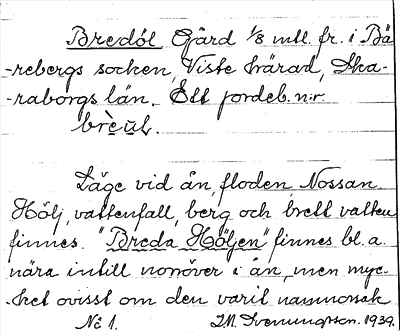 Bredöl Gård 1/8 mtl. fr. i Bä
-rebergs socken, Viste härad, Ska-
-raborgs län. Ett jordeb. n:r
brèùl.
Läge vid ån, floden, Nossan.
Hölj, vattenfall, berg och brett vatten
finnes. "Breda Höljen" finnes bl. a.
nära intill norröver i ån, men myc-
-ket ovisst om den varit namnorsak
No 1.
I.M. Svenungsson. 1939.